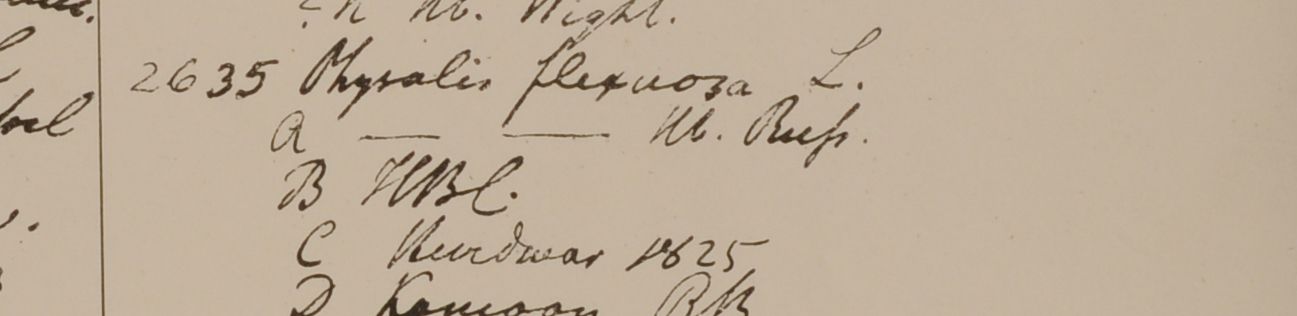 Hb. Wight.
2635 Physalis flexuosa L.
A — — Hb. Russ.
B HBC.
C Hurdwar 1825
D Kamoon RB